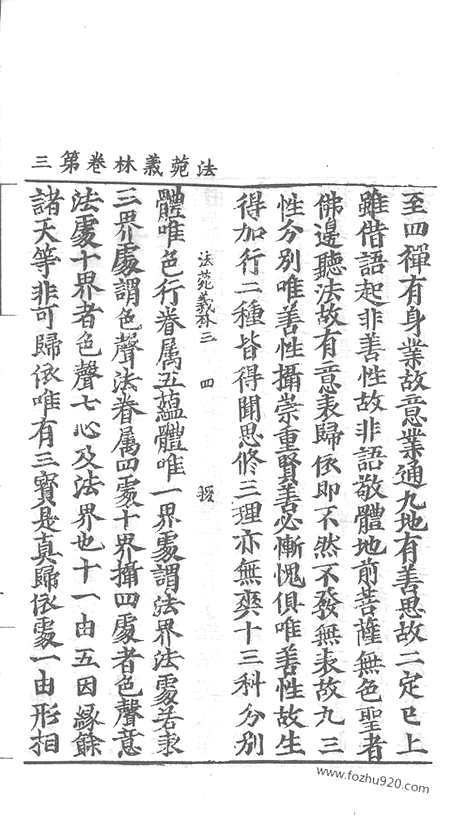 法苑義林卷第三
至四禪有身業故意業通九地有善思故二定已上
雖借語起非善性故非語敬體地前菩薩無色聖者
佛邊聽法故有意表歸依即不然不發無表故九三
性分別唯善性攝崇重賢善必慚愧俱唯善性故生
得加行二種皆得聞思修三理亦無爽十三科分別
法苑義林三 四
體唯色行眷屬五蘊體唯一界處謂法界法處若隶
三界處謂色聲法眷屬四處十界攝四處者色聲意
法處十界者色聲七心及法界也十一由五因緣餘
諸天等非可歸依唯有三寳是真歸依處一由形相
www.fozhu920.com